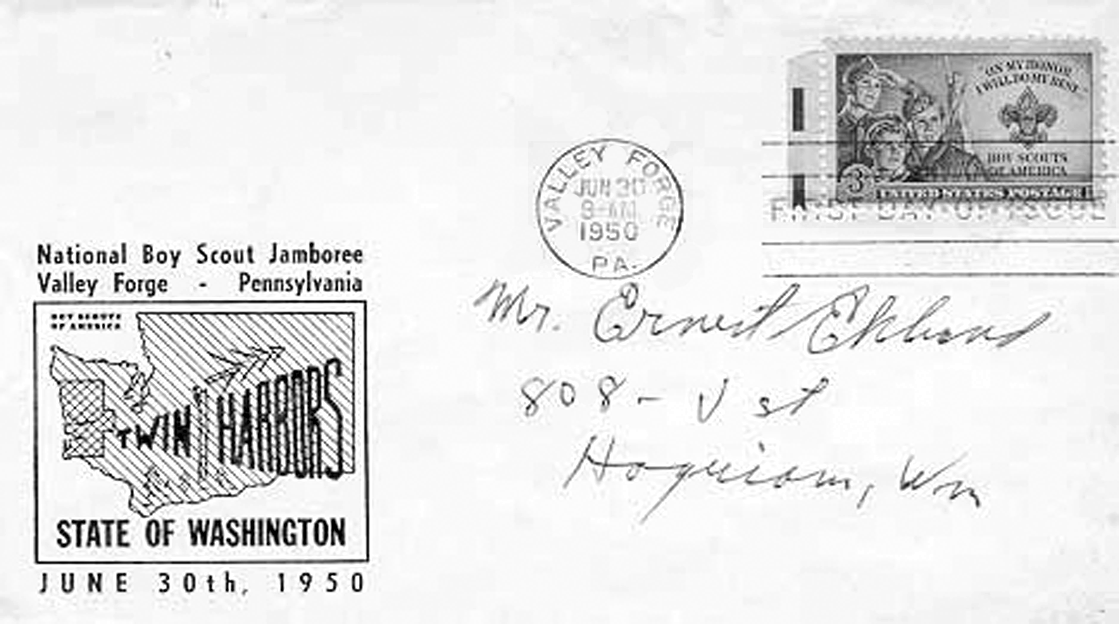 "ON MY HONOR
I WILL DO MY BEST"
BOY SCOUTS
OF AMERICA
3¢ UNITED STATES POSTAGE
VALLEY FORGE
JUN 30
9-AM
1950
PA.
FIRST DAY OF ISSUE
National Boy Scout Jamboree
Valley Forge - Pennsylvania
BOY SCOUTS
OF AMERICA
TWIN HARBORS
STATE OF WASHINGTON
JUNE 30th, 1950
Mr. Ernest Eklund
808 - J st
Hoquiam, Wn